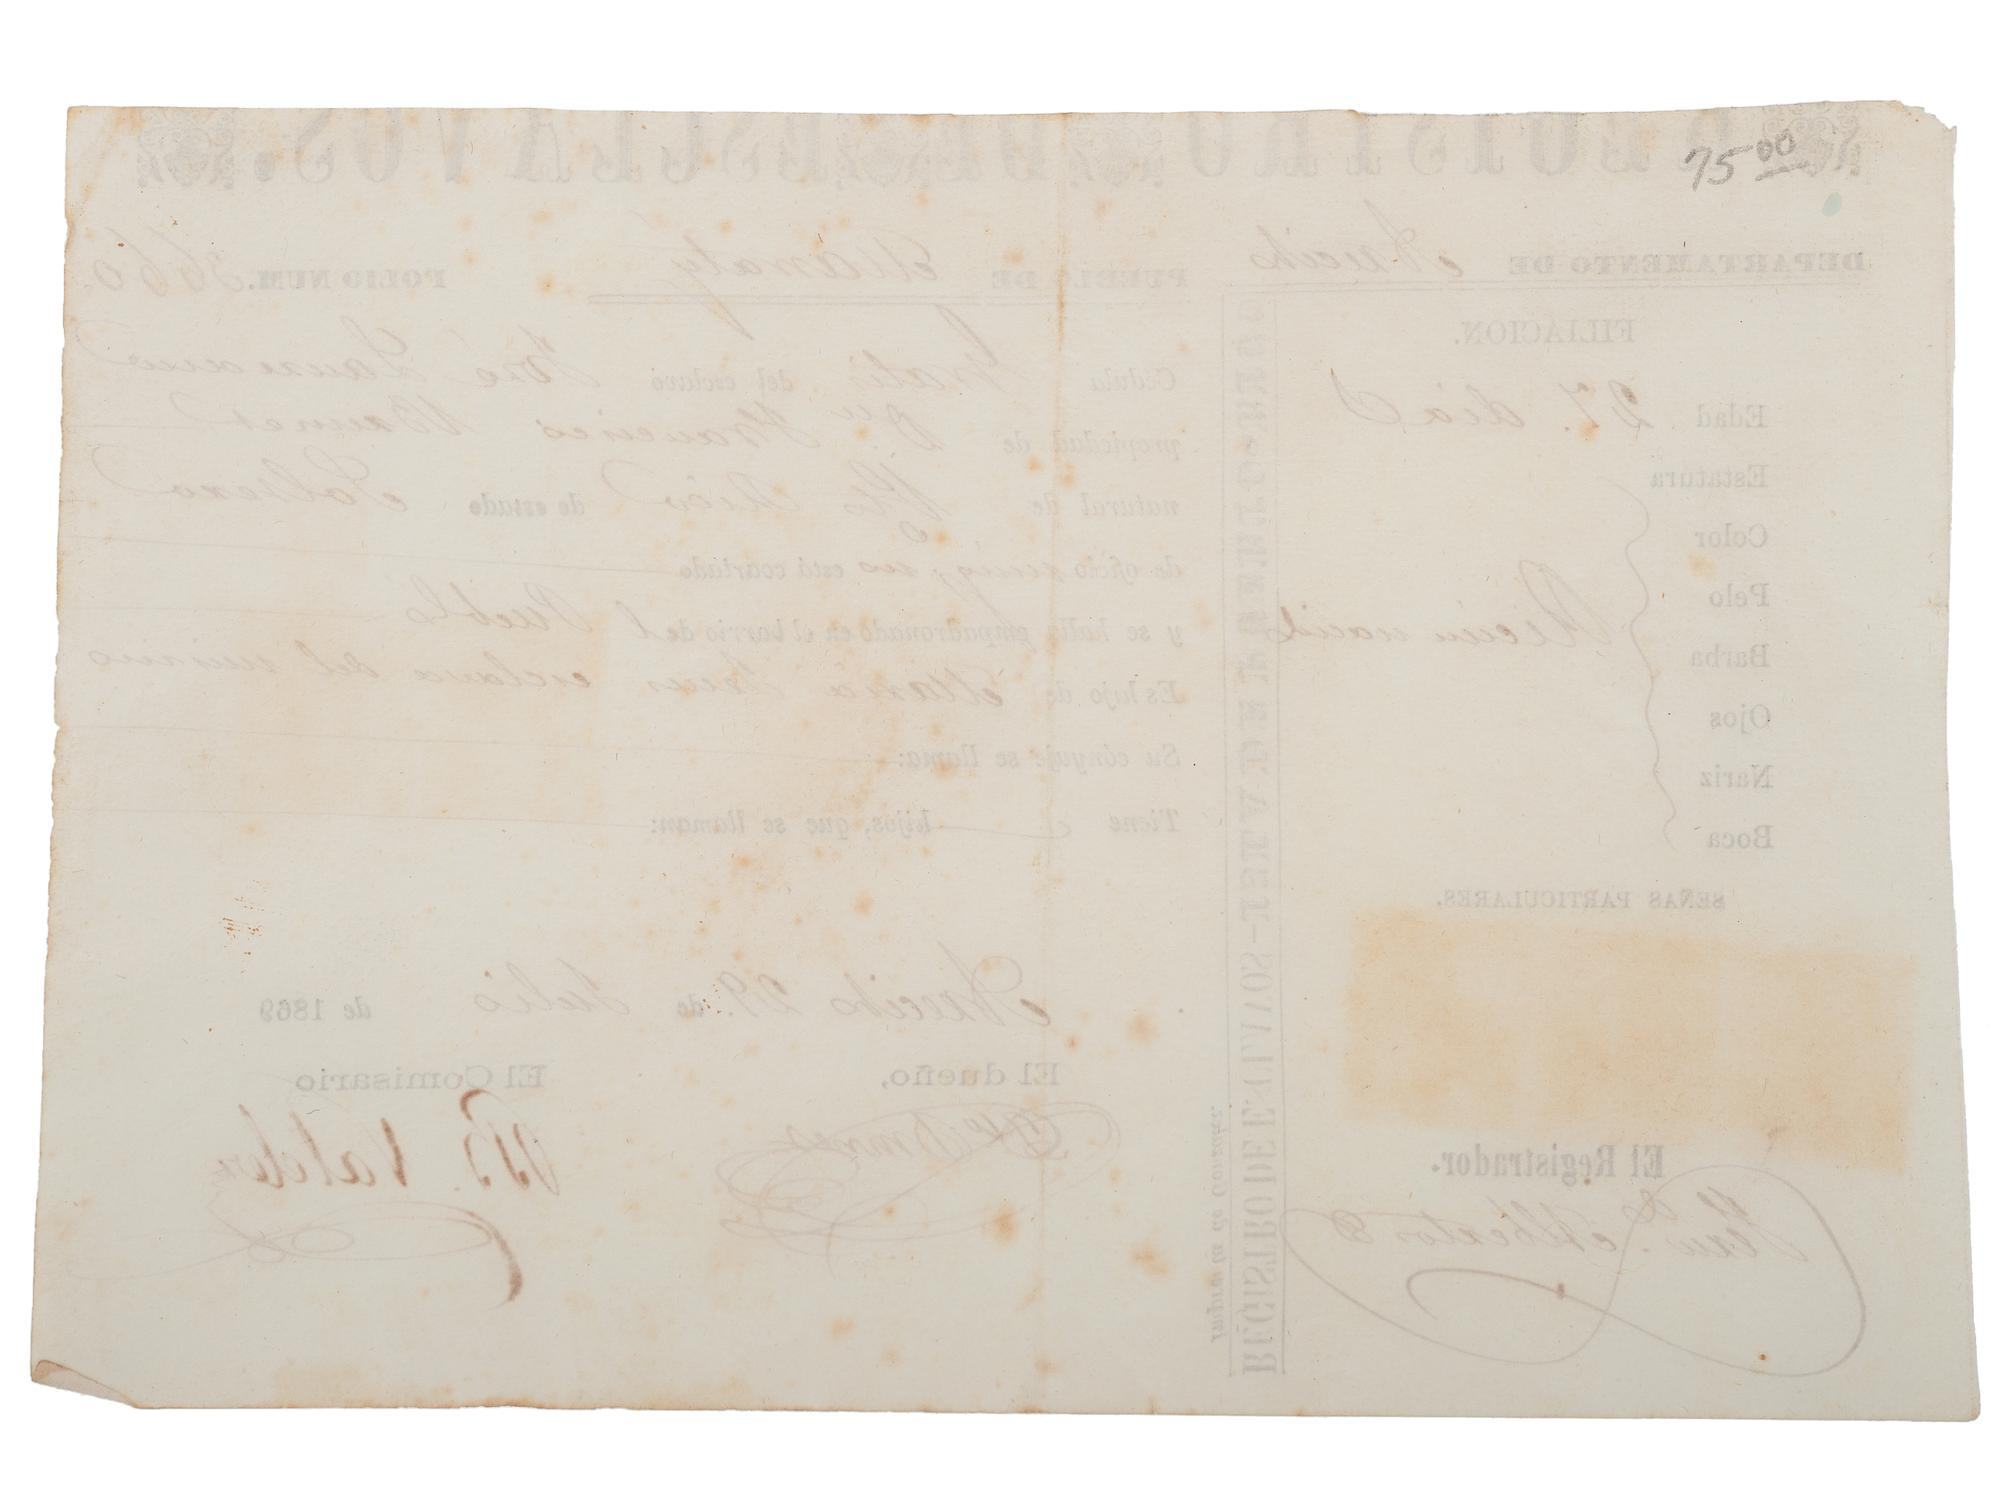 75 00
REGISTRO DE ESCLAVOS.
DEPARTAMENTO DE Arecibo PUEBLO DE Manaty FOLIO NUM. 3660.
FILIACION.
Edad 27. dias
Estatura
Color
Pelo
Barba
Ojos
Nariz
Boca
Recien nacido
SEÑAS PARTICULARES.
El Registrador.
REGISTRO DE ESCLAVOS—ISLA DE PUERTO-RICO
Imprenta de Gonzalez.
Cédula gratis del esclavo José Laureano
propiedad de Dn Francisco
natural de Pto Rico de estado Soltero
de oficio ning; nos está coartado
y se halla empadronado en el barrio del Pueblo
Es hijo de Maria esclava del mismo
Su cónyuje se llama:
Tiene hijos, que se llaman:
Arecibo 29. de Julio de 1869
El dueño, El Comisario
B. Valdes